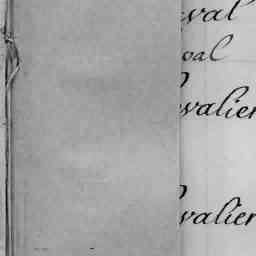 val
val
valier
valier